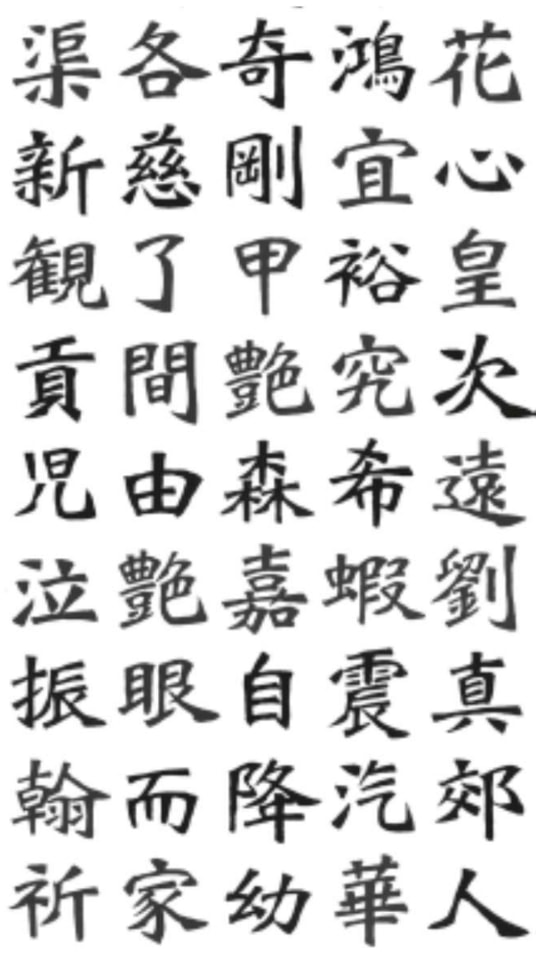 渠各奇鴻花
新慈剛宜心
観了甲裕皇
貢間艶究次
児由森希遠
泣艶嘉蝦劉
振眼自震真
翰而降汽郊
祈家幼華人